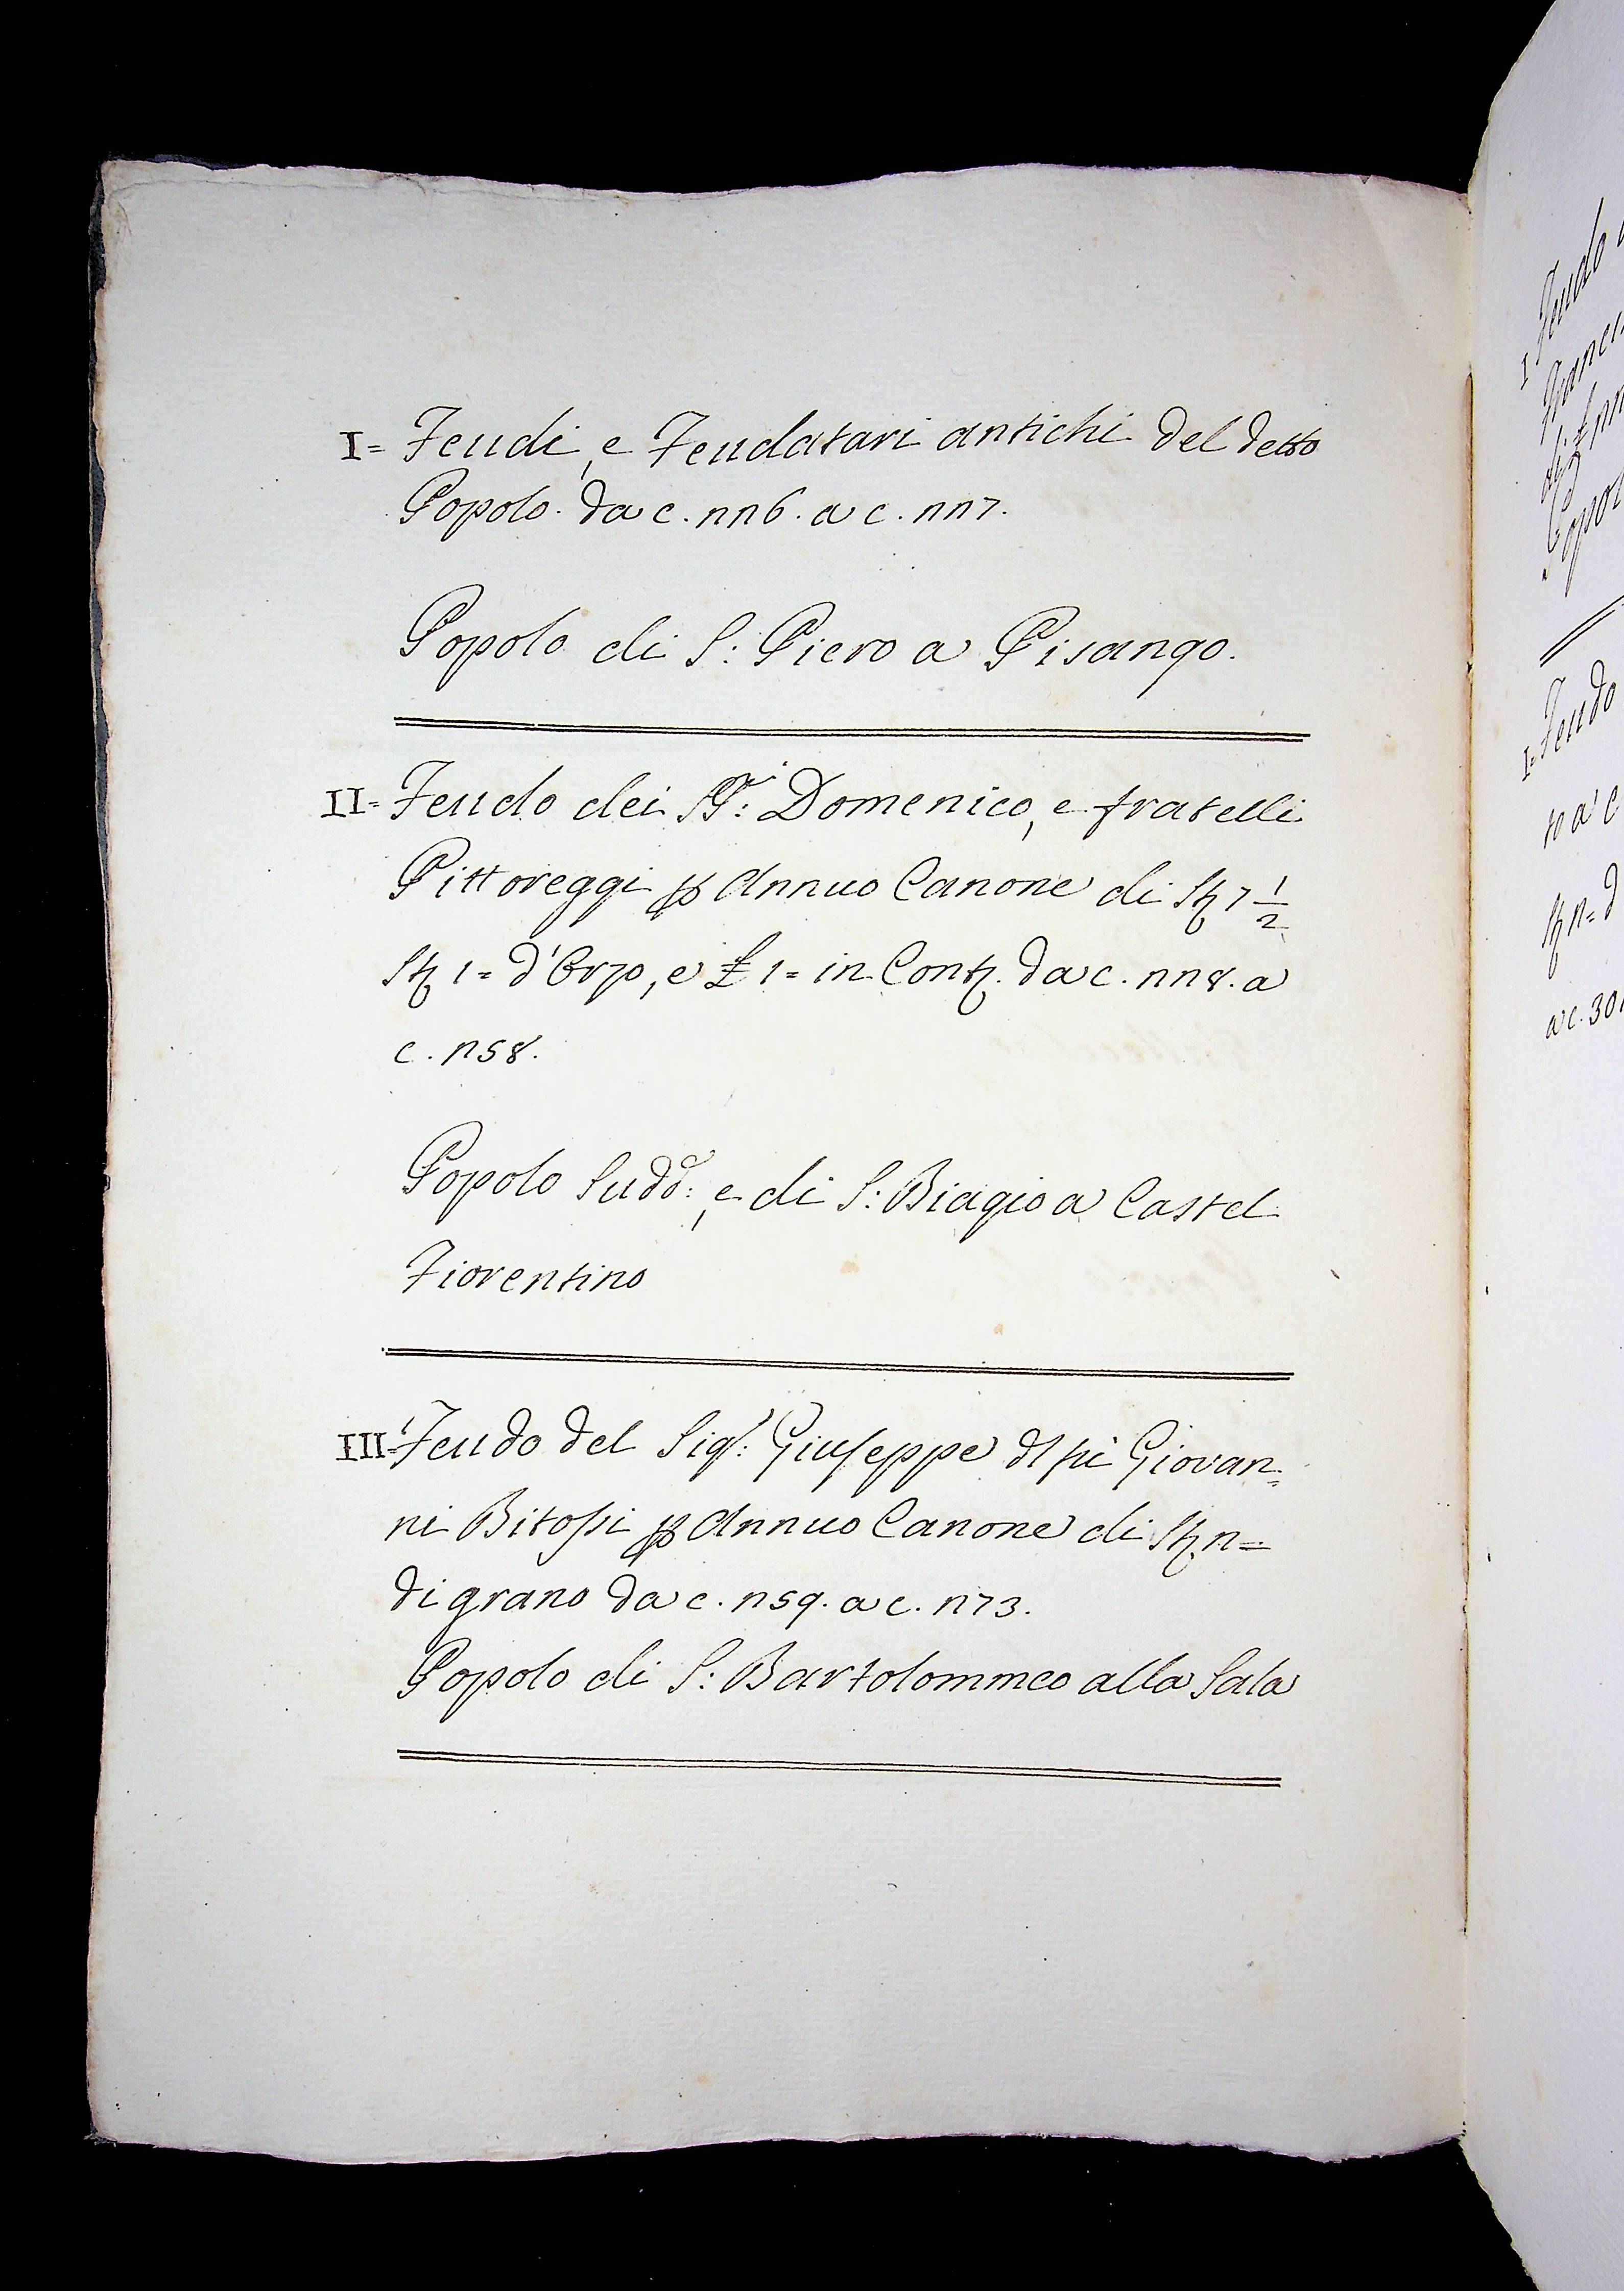 I= Feudi, e Feudatari antichi del detto
Popolo da c. 226. a c. 227.
Popolo di S: Piero a Pisango.
II= Feudo dei SS.ri: Domenico, e fratelli
Pittoreggi p Annuo Canone di Sta 7 1/2
Sta 1= d'Orzo, e £ 1= in Conti. da c. 228. a
c. 258.
Popolo Sudd.o: e di S: Biagio a Castel
Fiorentino
III= Feudo del Sigr: Giuseppe dl fù Giovan=
ni Bitossi p Annuo Canone di Sta 2=
di grano da c. 259. a c. 273.
Popolo di S: Bartolommeo alla Sala
I Feudo
I= Feudo
a c. 30